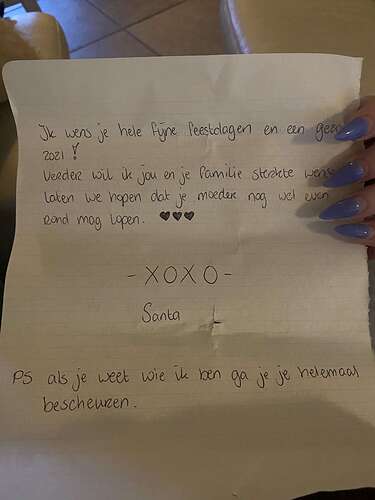 Ik wens je hele fijne feestdagen en een
2021!
Verder wil ik jou en je familie sterkte
laten we hopen dat je moeder nog wel even
rond mag lopen. ♥♥♥
- XOXO -
Santa
PS als je weet wie ik ben ga je je helemaal
bescheuren.